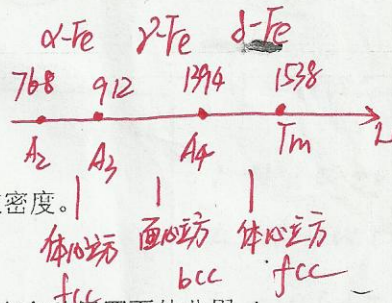 α-Fe γ-Fe δ-Fe
768 912 1394 1538
A2 A3 A4 Tm
密度。
体心立方 面心立方 体心立方
fcc bcc fcc